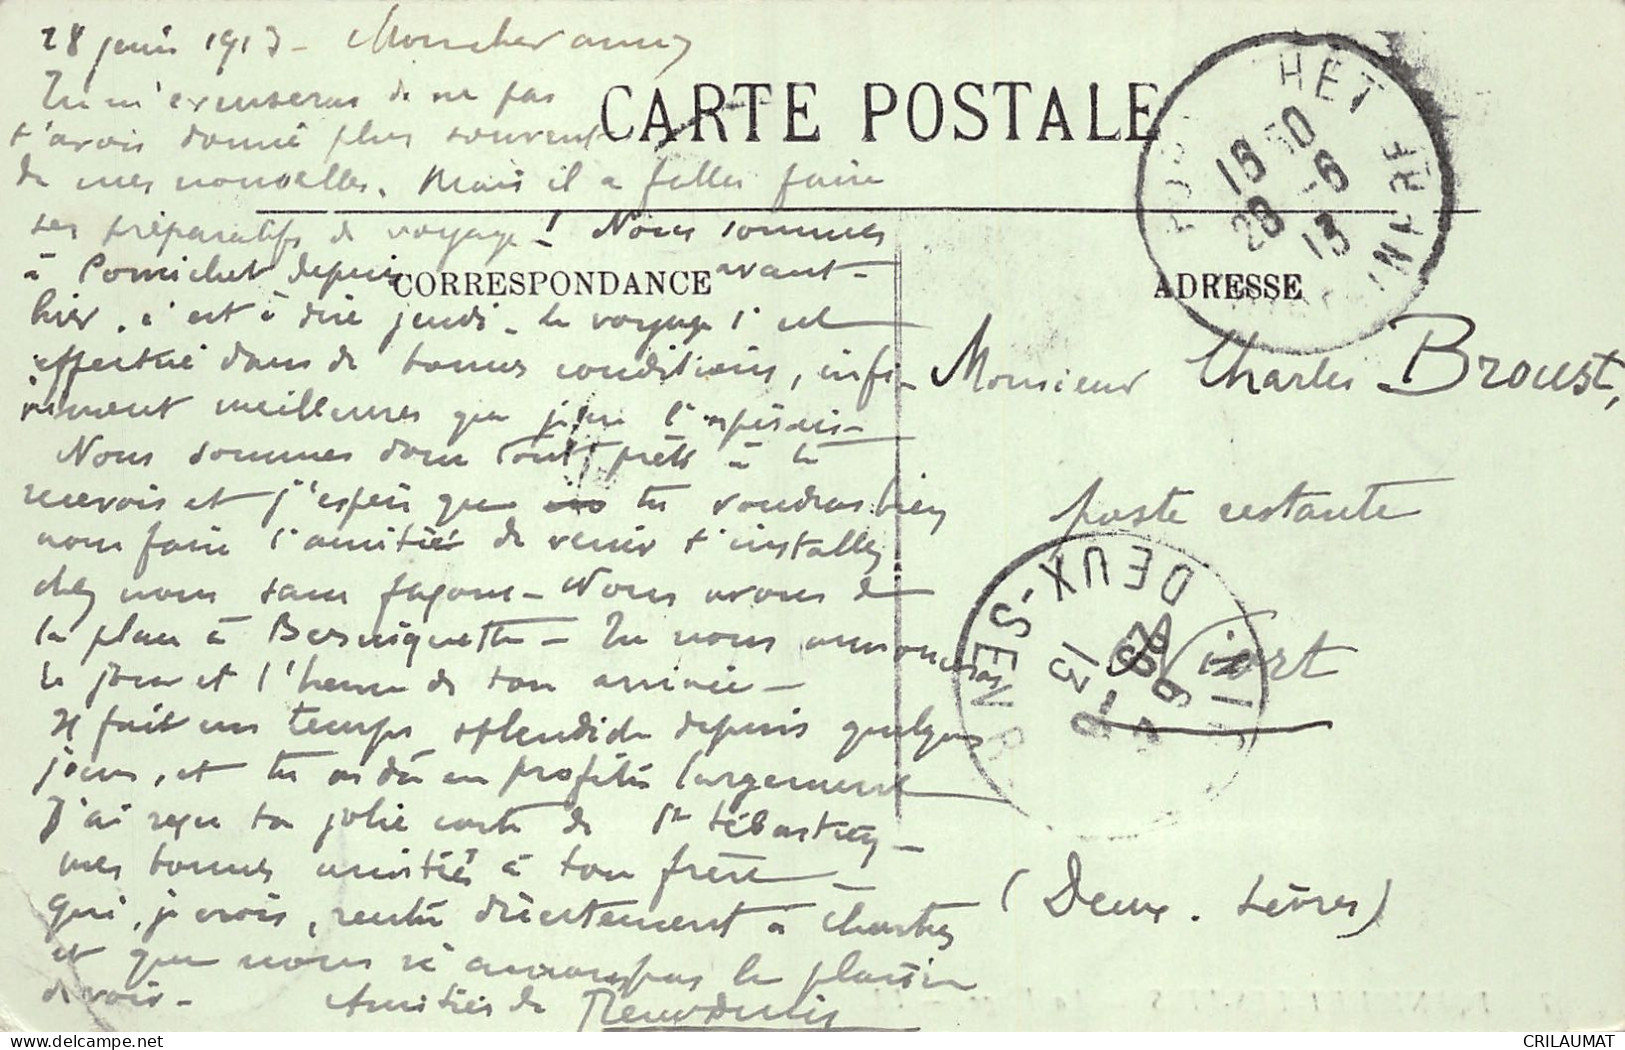 28 juin 1913 - Mon cher ami
Tu m'excuseras de ne pas
t'avoir donné plus souvent
de mes nouvelles. Mais il a fallu faire
les préparatifs de voyage ! Nous sommes
à Pornichet depuis avant-
hier, c'est à dire jeudi. Le voyage s'est
effectué dans de bonnes conditions, infi-
niment meilleures que je ne l'espérais -
Nous sommes donc tout prêts à te
recevoir et j'espère que tu voudras bien
nous faire l'amitié de venir t'installer
chez nous sans façons - Nous avons de
la place à - Tu nous annonceras
le jour et l'heure de ton arrivée -
Il fait un temps splendide depuis quelques
jours, et tu as dû en profiter largement
J'ai reçu ta jolie carte de St Sébastien -
mes bonnes amitiés à ton frère -
qui, je crois, rentre directement à Chartres
et que nous n'aurons pas le plaisir
de voir - Amitiés de
CARTE POSTALE
CORRESPONDANCE
ADRESSE
Monsieur Charles Broust,
poste restante
Niort
(Deux-Sèvres)
HET
INFRE
16 50
28 -6
13
DEUX-SEVR
28-6
13
CRILAUMAT